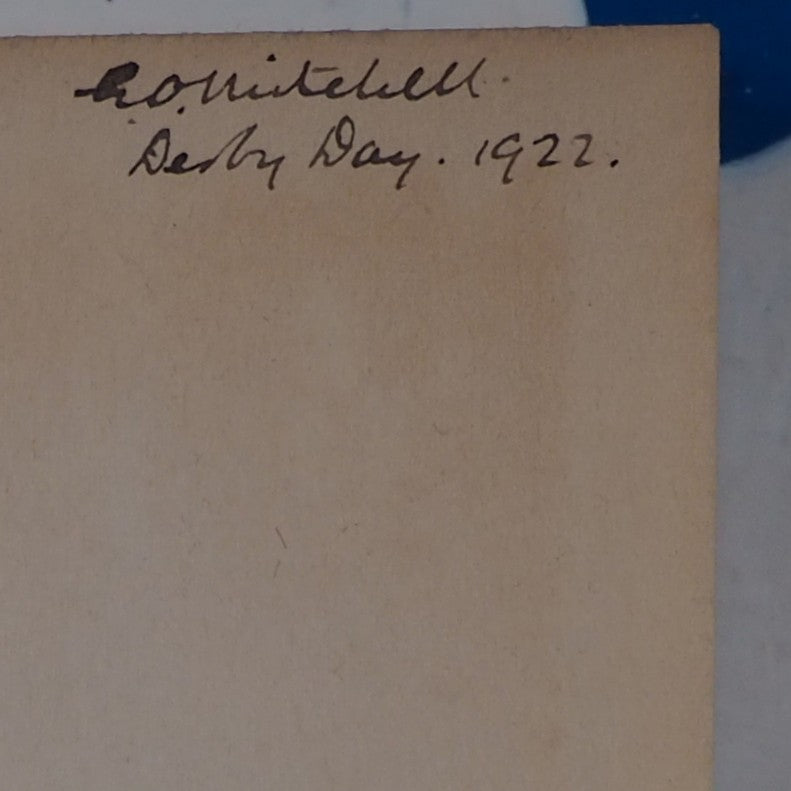 G.O. Mitchell.
Derby Day. 1922.